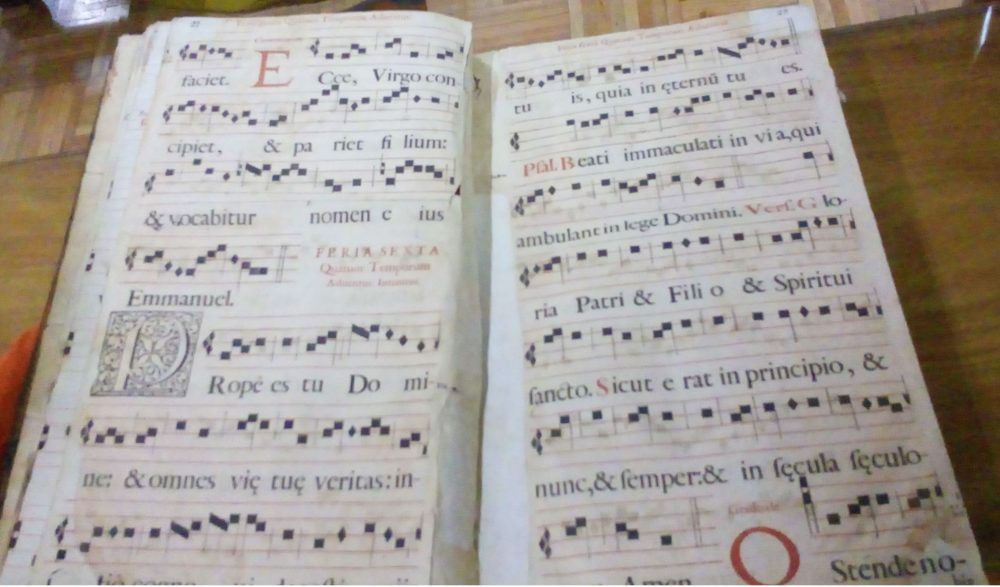 faciet. E Cce, Virgo con
cipiet, & pa riet fi lium:
& vocabitur nomen e ius
Emmanuel.
FERIA SEXTA
Quatuor Temporum
Aduentus. Introitus.
P Ropè es tu Do mi-
ne: & omnes vię tuę veritas: in-
tio cogno
tu is, quia in ęternũ tu es.
Psal. Beati immaculati in via, qui
ambulant in lege Domini. Vers. Glo-
ria Patri & Fili o & Spiritui
sancto. Sicut e rat in principio, &
nunc, & semper: & in sęcula sęculo-
Amen
Graduale
O Sténde no-